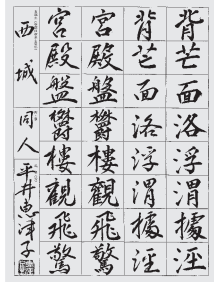 背芒面洛浮渭據涇
背芒面洛浮渭據涇
宮殿盤欝樓觀飛驚
宮殿盤欝樓觀飛驚
西城 同人 平井恵津子